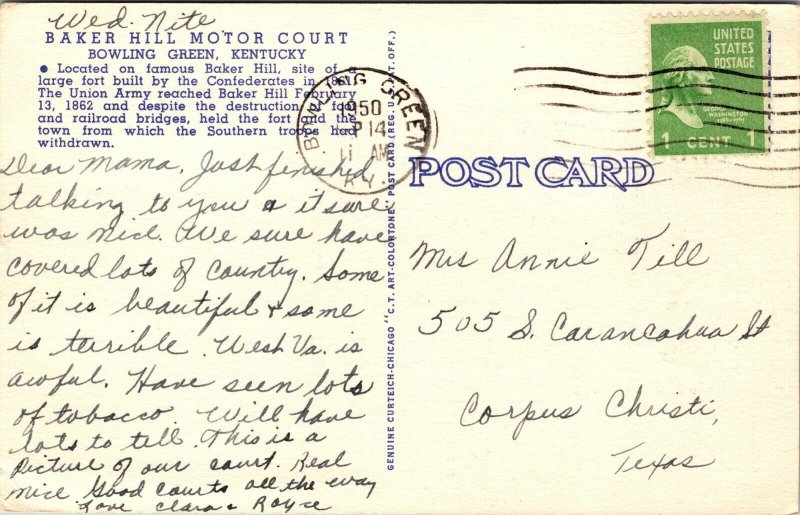 Wed. Nite
BAKER HILL MOTOR COURT
BOWLING GREEN, KENTUCKY
● Located on famous Baker Hill, site of a
large fort built by the Confederates in 1861.
The Union Army reached Baker Hill February
13, 1862 and despite the destruction of fort
and railroad bridges, held the fort and the
town from which the Southern troops had
withdrawn.
Dear Mama, Just finished
talking to you & it sure
was nice. We sure have
covered lots of country. Some
of it is beautiful & some
is terrible. West Va. is
awful. Have seen lots
of tobacco. Will have
lots to tell. This is a
Picture of our court. Real
nice Good courts all the way
Love Clara & Royce
GENUINE CURTEICH-CHICAGO "C.T. ART-COLORTONE" POST CARD (REG. U.S. PAT. OFF.)
BOWLING GREEN
1950
14
11 AM
KY.
POST CARD
UNITED
STATES
POSTAGE
GEORGE
WASHINGTON
1 CENT 1
Mrs Annie Till
505 S. Carancahua St
Corpus Christi,
Texas